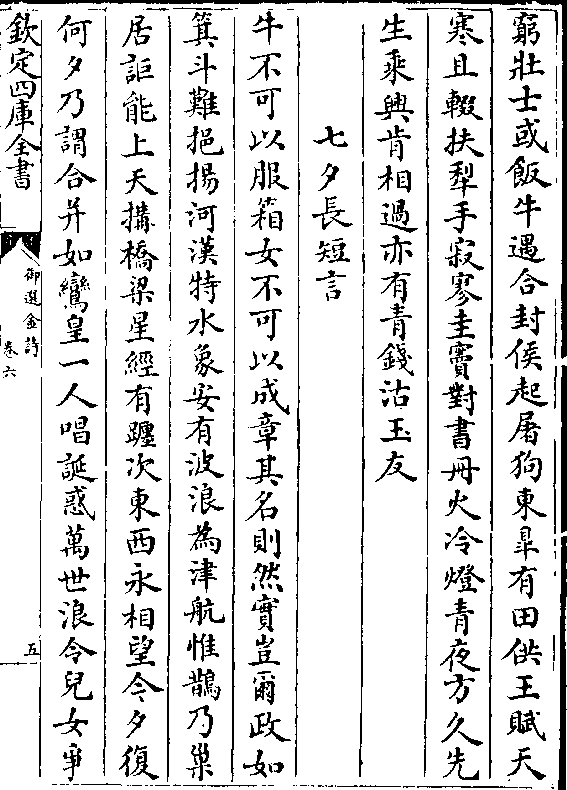 窮壯士或飯牛遇合封侯起屠狗東臯有田供王賦天
寒且輟扶犁手寂寥圭竇對書冊火冷燈青夜方久先
生乘興肯相過亦有青錢沽玉友
七夕長短言
牛不可以服箱女不可以成章其名則然實豈爾政如
箕斗難挹揚河漢特水象安有波浪為津航惟鵲乃巢
居詎能上天搆橋梁星經有躔次東西永相望今夕復
何夕乃謂合并如鸞皇一人唱誕惑萬世浪令兒女爭
欽定四庫全書
御選金詩
卷六
五